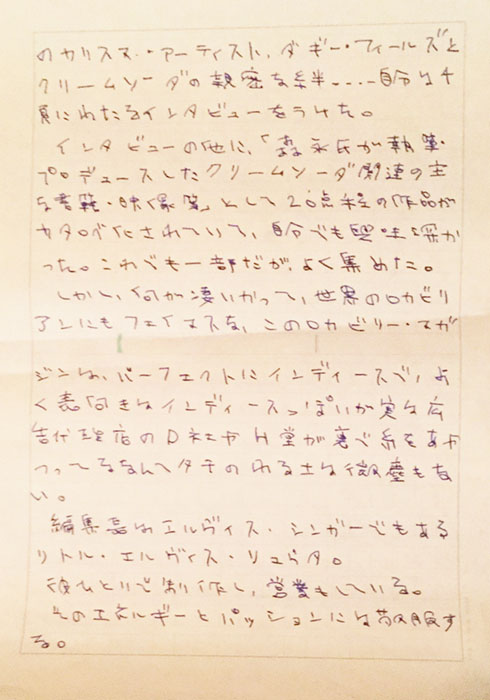 のカリスマ・アーティスト、ダギー・フィールズと
クリームソーダの親密な絆‥‥自分は十
頁にわたるインタビューをうけた。
インタビューの他に、「森永氏が執筆・
プロデュースしたクリームソーダ関連の主
な書籍・映像集」として20点程の作品が
カタログ化されていて、自分でも興味深か
った。これでも一部だが、よく集めた。
しかし、何が凄いかって、世界のロカビリ
アンにもフェイマスな、このロカビリー・マガ
ジンは、パーフェクトにインディーズで、よ
く表向きはインディーズっぽいが実は広
告代理店のD社やH堂が裏で糸をあや
つってるなんてタチのわる土は微塵もな
い。
編集長はエルヴィス・シンガーでもある
リトル・エルヴィス・リュウタ。
彼ひとりで制作し、営業もしている。
そのエネルギーとパッションには敬服す
る。